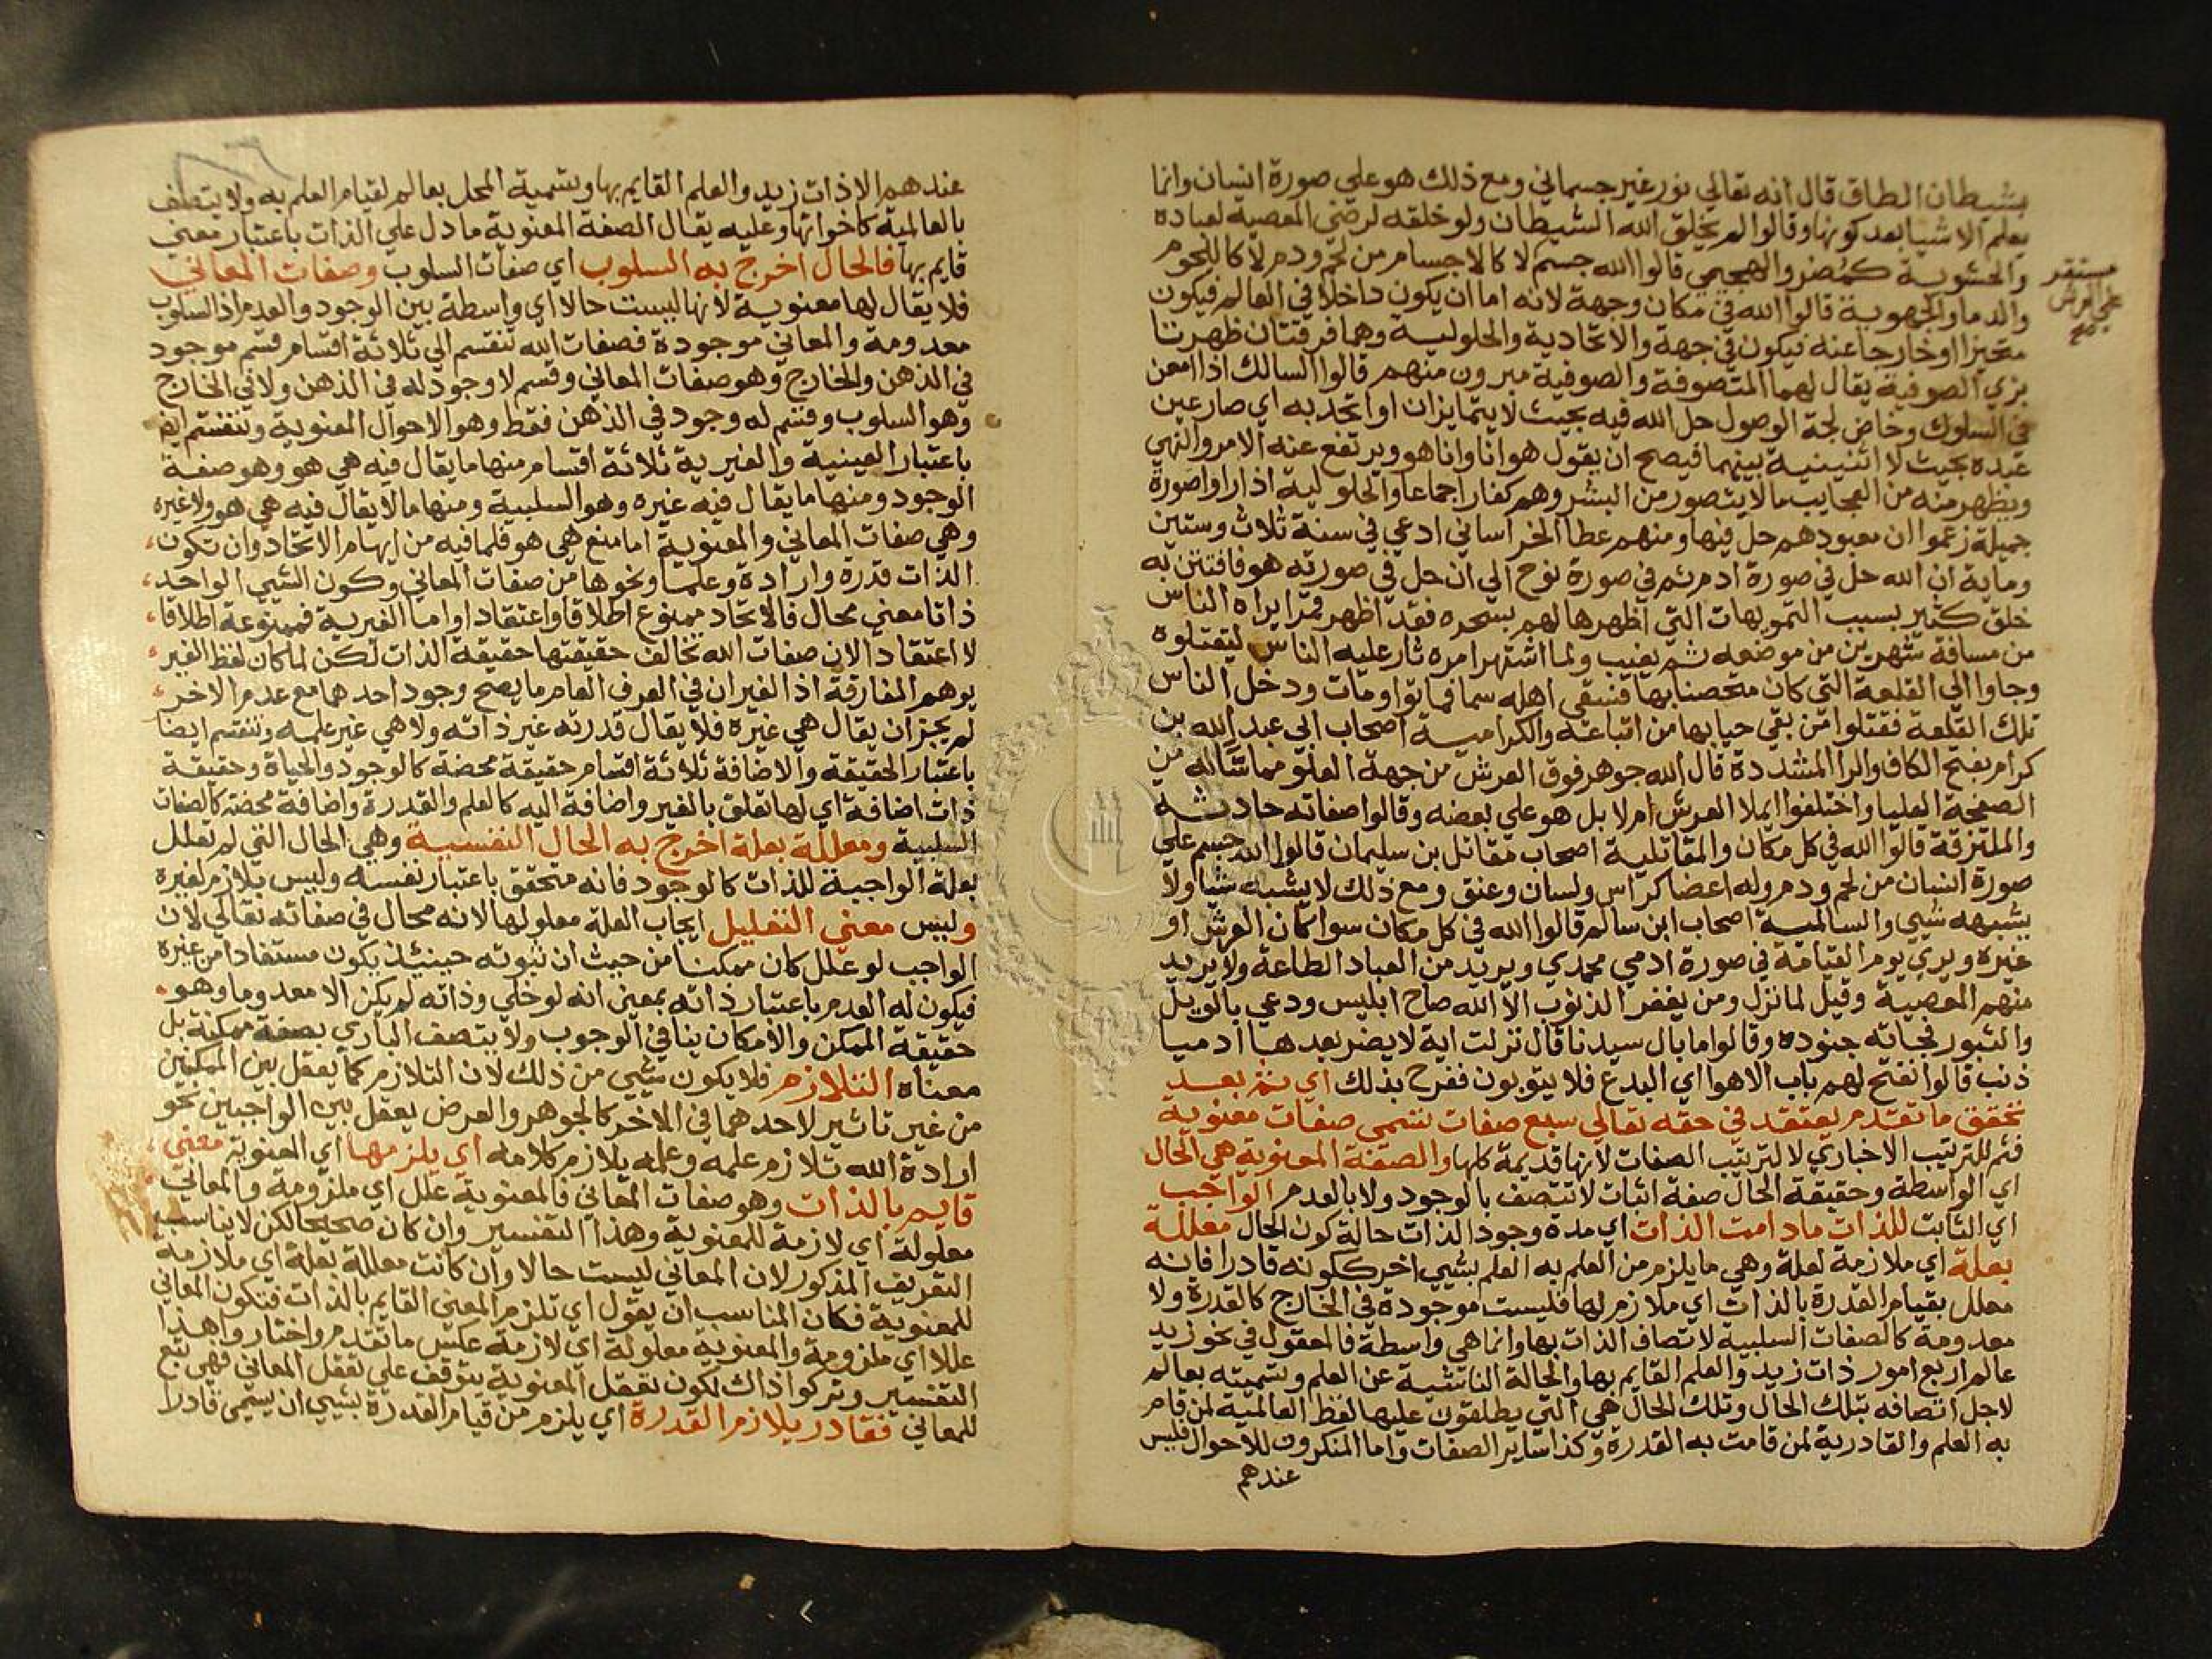 بشيطان الطاق قال انه تعالي نور غير جسماني ومع ذلك هو علي صورة انسان وانما
يعلم الاشيا بعد كونها وقالوا لم يخلق الله الشيطان ولو خلقه لرضي المعصية لعباده
والحشوية كمضر والهجيمي قالوا الله جسم لا كالاجسام من لحم ودم لا كاللحوم
مستقر
علي العرش
صح
والدما والجهوية قالوا الله في مكان وجهة لانه اما ان يكون داخلا في العالم فيكون
متحيزا او خارجا عنه فيكون في جهة والاتحادية والحلولية وهما فرقتان ظهرتا
بزي الصوفية يقال لهما المتصوفة والصوفية مبرون منهم قالوا السالك اذا امعن
في السلوك وخاض لجة الوصول حل الله فيه بحيث لا يتمايزان او اتحد به اي صار عين
عبده بحيث لا اثنينية بينهما فيصح ان يقول هو انا وانا هو ويرتفع عنه الامر والنهي
ويظهر منه من العجايب ما لا يتصور من البشر وهم كفار اجماعا والحلولية اذا راوا صورة
جميلة زعموا ان معبودهم حل فيها ومنهم عطا الخراساني ادعي في سنة ثلاث وستين
وماية ان الله حل في صورة ادم ثم في صورة نوح الي ان حل في صورته هو فافتتن به
خلق كثير بسبب التمويهات التي اظهرها لهم بسحره فقد اظهر قمرا يراه الناس
من مسافة شهرين من موضعه ثم يغيب ولما اشتهر امره ثار عليه الناس ليقتلوه
وجاوا الي القلعة التي كان متحصنا بها فسقي اهله سما فماتوا ومات ودخل الناس
تلك القلعة فقتلوا من بقي حيا بها من اتباعه والكرامية اصحاب ابي عبد الله بن
كرام بفتح الكاف والرا المشددة قال الله جوهر فوق العرش من جهة العلو مماسا له من
الصفحة العليا واختلفوا ايملا العرش ام لا بل هو علي بعضه وقالوا صفاته حادثة
والملتزقة قالوا الله في كل مكان والمقاتلية اصحاب مقاتل بن سليمان قالوا الله جسم علي
صورة انسان من لحم ودم وله اعضا كراس ولسان وعنق ومع ذلك لا يشبه شيا ولا
يشبهه شيي والسالمية اصحاب ابن سالم قالوا الله في كل مكان سوا كان العرش او
غيره ويري يوم القيامة في صورة ادمي محمدي ويريد من العباد الطاعة ولا يريد
منهم المعصية وقيل لما نزل ومن يغفر الذنوب الا الله صاح ابليس ودعي بالويل
والثبور فجاته جنوده وقالوا ما بال سيدنا قال نزلت اية لا يضر بعدها ادميا
ذنب قالوا نفتح لهم باب الاهوا اي البدع فلا يتوبون ففرح بذلك اي ثم بعد
تحقق ما تقدم يعتقد في حقه تعالي سبع صفات تسمي صفات معنوية
فثم للترتيب الاخباري لا لترتيب الصفات لانها قديمة كلها والصفة المعنوية هي الحال
اي الواسطة وحقيقة الحال صفة اثبات لا تتصف بالوجود ولا بالعدم الواجب
اي الثابت للذات ما دامت الذات اي مدة وجود الذات حالة كون الحال معللة
بعلة اي ملازمة لعلة وهي ما يلزم من العلم به العلم بشيي اخر ككونه قادرا فانه
معلل بقيام القدرة بالذات اي ملازم لها فليست موجودة في الخارج كالقدرة ولا
معدومة كالصفات السلبية لاتصاف الذات بها وانما هي واسطة فالمعقول في نحو زيد
عالم اربع امور ذات زيد والعلم القايم بها والحالة الناشئة عن العلم وتسميته بعالم
لاجل اتصافه بتلك الحال وتلك الحال هي التي يطلقون عليها لفظ العالمية لمن قام
به العلم والقادرية لمن قامت به القدرة وكذا ساير الصفات واما المنكرون للاحوال فليس
عندهم
عندهم الا ذات زيد والعلم القايم بها وتسمية المحل بعالم لقيام العلم به ولا يتصف
بالعالمية كاخواتها وعليه يقال الصفة المعنوية ما دل علي الذات باعتبار معني
قايم بها فالحال اخرج به السلوب اي صفات السلوب وصفات المعاني
فلا يقال لها معنوية لانها ليست حالا اي واسطة بين الوجود والعدم اذ السلوب
معدومة والمعاني موجودة فصفات الله تنقسم الي ثلاثة اقسام قسم موجود
في الذهن والخارج وهو صفات المعاني وقسم لا وجود له في الذهن ولا في الخارج
وهو السلوب وقسم له وجود في الذهن فقط وهو الاحوال المعنوية وتنقسم ايض
باعتبار العينية والغيرية ثلاثة اقسام منها ما يقال فيه هي هو وهو صفة
الوجود ومنها ما يقال فيه غيره وهو السلبية ومنها ما لا يقال فيه هي هو ولا غيره
وهي صفات المعاني والمعنوية اما منع هي هو فلما فيه من ايهام الاتحاد وان تكون
الذات قدرة وارادة وعلما ونحوها من صفات المعاني وكون الشيي الواحد
ذاتا معني محال فالاتحاد ممنوع اطلاقا واعتقادا واما الغيرية فممنوعة اطلاقا
لا اعتقادا لان صفات الله تخالف حقيقتها حقيقة الذات لكن لما كان لفظ الغير
يوهم المفارقة اذ الغيران في العرف العام ما يصح وجود احدهما مع عدم الاخر
لم يجز ان يقال هي غيره فلا يقال قدرته غير ذاته ولا هي غير علمه وتنقسم ايضا
باعتبار الحقيقة والاضافة ثلاثة اقسام حقيقة محضة كالوجود والحياة وحقيقة
ذات اضافة اي لها تعلق بالغير واضافة اليه كالعلم والقدرة واضافة محضة كالصفات
السلبية ومعللة بعلة اخرج به الحال النفسية وهي الحال التي لم تعلل
بعلة الواجبة للذات كالوجود فانه متحقق باعتبار نفسه وليس بلازم لغيره
وليس معني التعليل ايجاب العلة معلولها لانه محال في صفاته تعالي لان
الواجب لو علل كان ممكنا من حيث ان ثبوته حينيذ يكون مستفادا من غيره
فيكون له العدم باعتبار ذاته بمعني انه لو خلي وذاته لم يكن الا معدوما وهو
حقيقة الممكن والامكان ينافي الوجوب ولا يتصف الباري بصفة ممكنة بل
معناه التلازم فلا يكون شيي من ذلك لان التلازم كما يعقل بين الممكنين
من غير تاثير لاحدهما في الاخر كالجوهر والعرض يعقل بين الواجبين نحو
ارادة الله تلازم علمه وعلمه يلازم كلامه اي يلزمها اي المعنوية معني
قايم بالذات وهو صفات المعاني فالمعنوية علل اي ملزومة والمعاني
معلولة اي لازمة للمعنوية وهذا التفسير وان كان صحيحا لكن لا يناسب
التعريف المذكور لان المعاني ليست حالا وان كانت معللة بعلة اي ملازمة
للمعنوية فكان المناسب ان يقول اي تلزم المعني القايم بالذات فتكون المعاني
عللا اي ملزومة والمعنوية معلولة اي لازمة عكس ما تقدم واختاروا هذا
التفسير وتركوا ذاك لكون تعقل المعنوية يتوقف علي تعقل المعاني فهي تبع
للمعاني فقادر يلازم القدرة اي يلزم من قيام القدرة بشيي ان يسمي قادرا